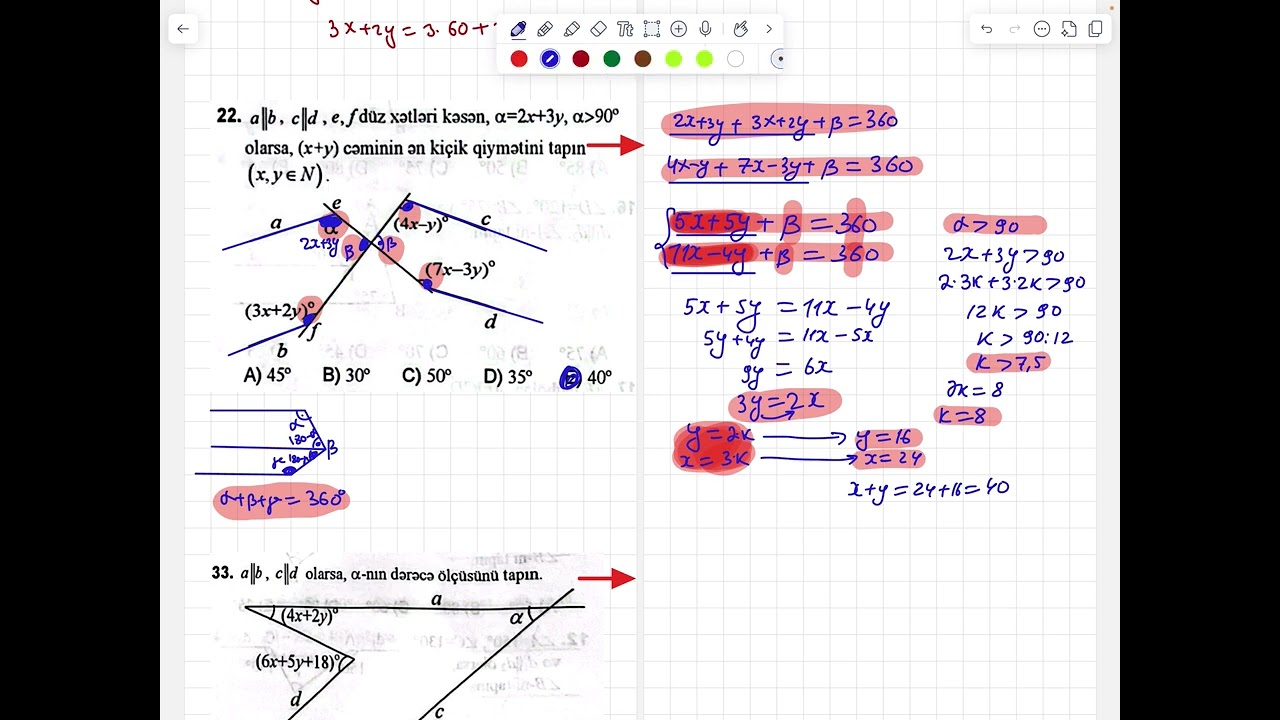 3x+2y = 3.60+
Tt
22. a∥b, c∥d, e, f düz xətləri kəsən, α=2x+3y, α>90°
olarsa, (x+y) cəminin ən kiçik qiymətini tapın
(x, y∈N).
e
a
α
2x+3y
β
β
(4x−y)°
c
(7x−3y)°
(3x+2y)°
f
d
b
A) 45° B) 30° C) 50° D) 35° 40°
α
180-α
β
180-γ
γ
α+β+γ = 360°
2x+3y + 3x+2y + β = 360
4x-y + 7x-3y + β = 360
5x+5y + β = 360
11x-4y + β = 360
5x+5y = 11x-4y
5y+4y = 11x-5x
9y = 6x
3y=2x
y=2·k
x=3·k
α>90
2x+3y>90
2·3k+3·2k>90
12k>90
k>90:12
k>7,5
k=8
k=8
y=16
x=24
x+y=24+16=40
33. a∥b, c∥d olarsa, α-nın dərəcə ölçüsünü tapın.
a
(4x+2y)°
α
(6x+5y+18)°
d
c